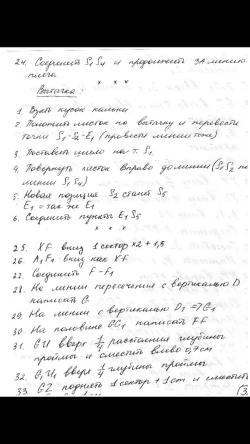 24. Соединить S₁ S₄ и продолжить за линию
плеча
* * *
Вытачка:
1. Взять кусок кальки
2. Положить листок по вытачку и перевести
точки S₁-S₂-E₁ (провести линии тоже)
3. Поставить шило на т. S₁
4. Повернуть листок вправо до линии (S₁S₂ по
линии S₁ S₄)
5. Новая позиция S₂ станет S₅
E₁ = так же E₁
6. Соединить пункты E₁ S₅
* * *
25. XF вниз 1 сектор x2 + 1,5
26. A₁F₁ вниз как XF
27. Соединить F-F₁
28. На линии пересечения с вертикалью D
написать G
29. На линии с вертикалью D₁ = G₁
30. На половине GG₁ написать FF
31. GU вверх 1/4 расстояния глубины
проймы и сместить влево 0,7 см
32. G₁U₁ вверх 1/4 глубины проймы
33. GZ поднять 1 сектор + 1 см и сместить